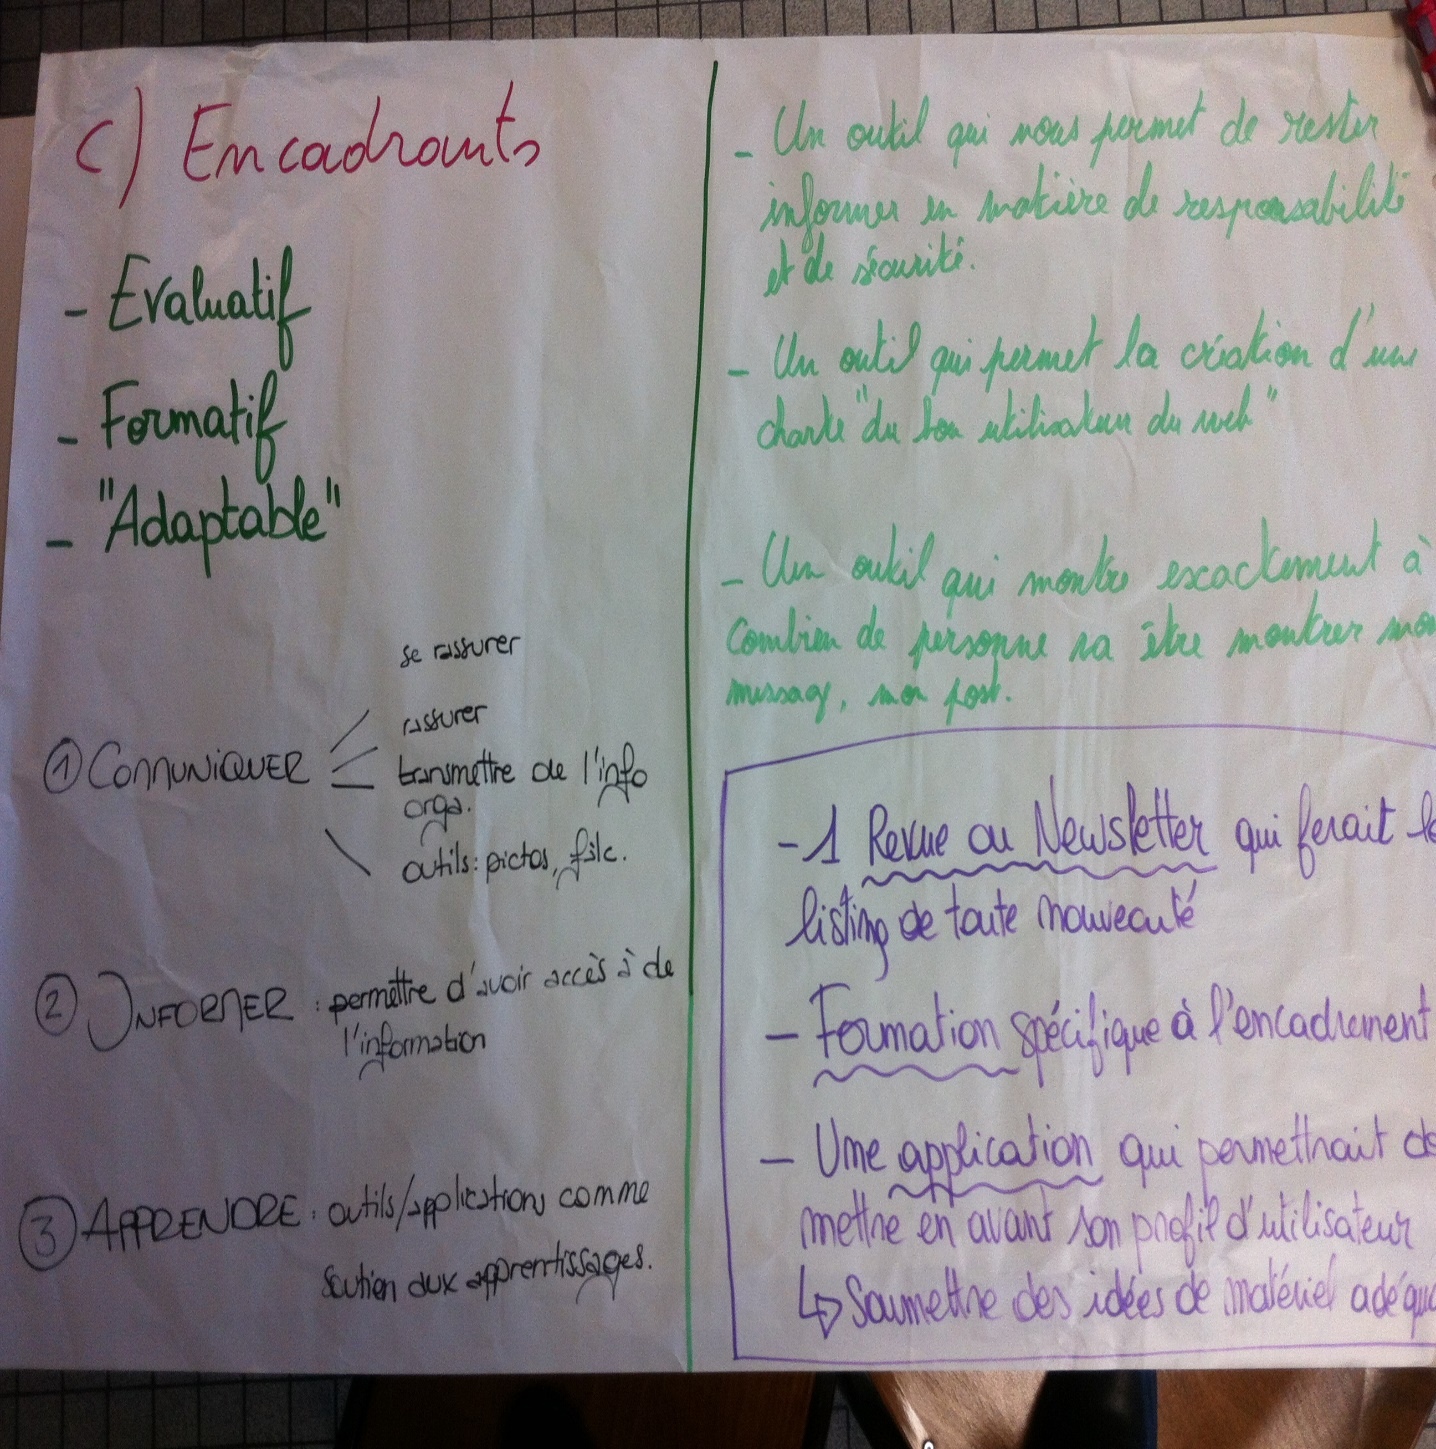 c) Encadrants
- Evaluatif
- Formatif
- "Adaptable"
se rassurer
rassurer
① COMMUNIQUER transmettre de l'info
orga.
outils: pictos, falc.
② INFORMER : permettre d'avoir accès à de
l'information
③ APPRENDRE : outils/applications comme
soutien aux apprentissages.
- Un outil qui nous permet de rester
informer en matière de responsabilité
et de sécurité.
- Un outil qui permet la création d'une
charte "du bon utilisateur du web"
- Un outil qui montre exactement à
Combien de personne va être montrer mon
message, mon post.
- 1 Revue ou Newsletter qui ferait le
listing de toute nouveauté
- Formation spécifique à l'encadrement
- Une application qui permettrait de
mettre en avant son profil d'utilisateur
↳ Soumettre des idées de matériel